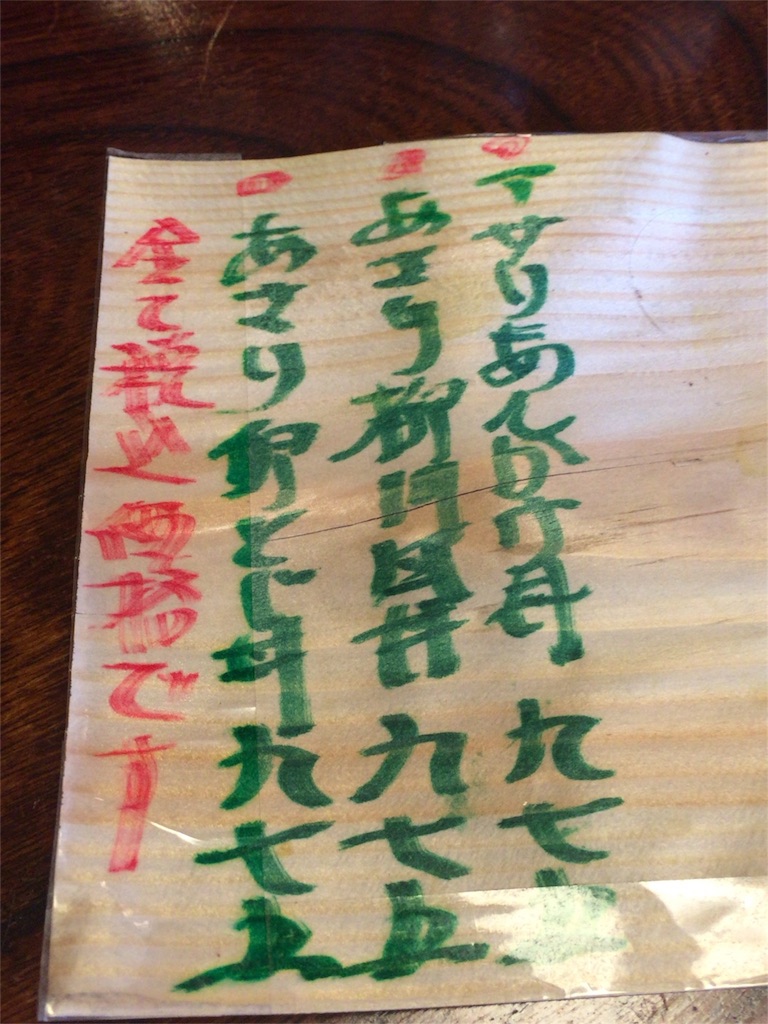 アサリあんかけ丼 九七五
あさり柳川風丼 九七五
あさり卵とじ丼 九七五
全て税込価格です